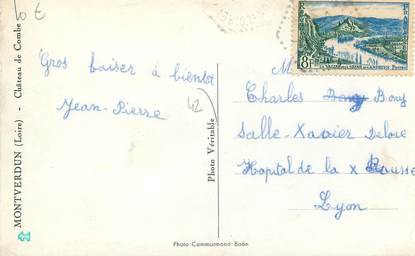 10 €
MONTVERDUN (Loire) - Château de Combe
Gros baiser à bientot
Jean-Pierre
42
Photo Véritable
8F
M
Charles Bony
Salle-Xavier Delore
Hopital de la X Rousse
Lyon
Photo Commarmond Boën